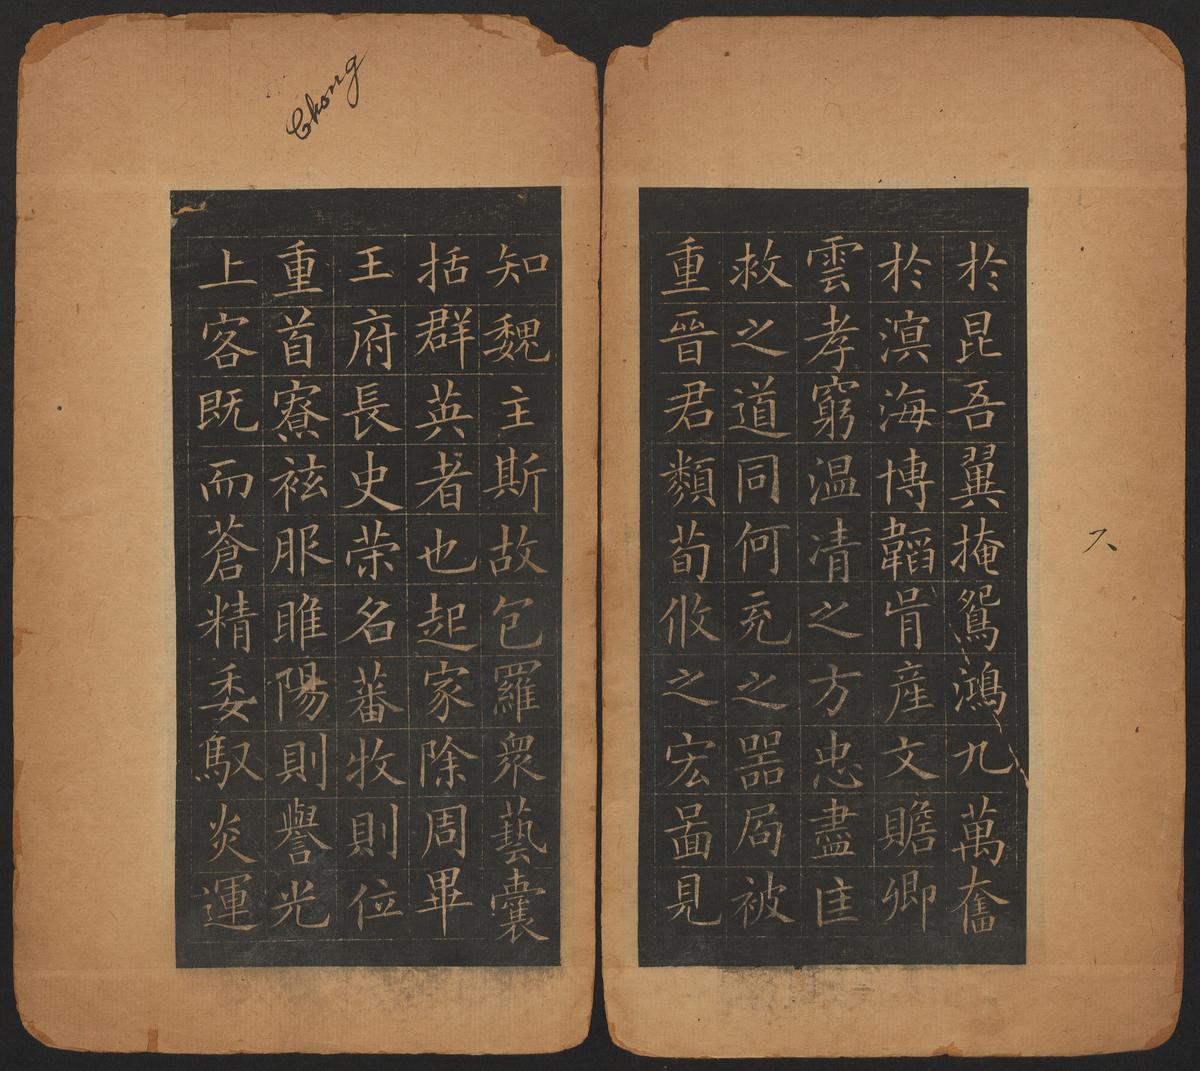 Chong
於昆吾翼掩鴛鴻九萬奮
於溟海博韜胄産文贍卿
雲孝窮温凊之方忠盡匡
救之道同何充之器局被
重晉君類荀攸之宏啚見
知魏主斯故包羅衆藝囊
括群英者也起家除周畢
王府長史荣名蕃牧則位
重首寮袨服睢陽則譽光
上客既而蒼精委馭炎運